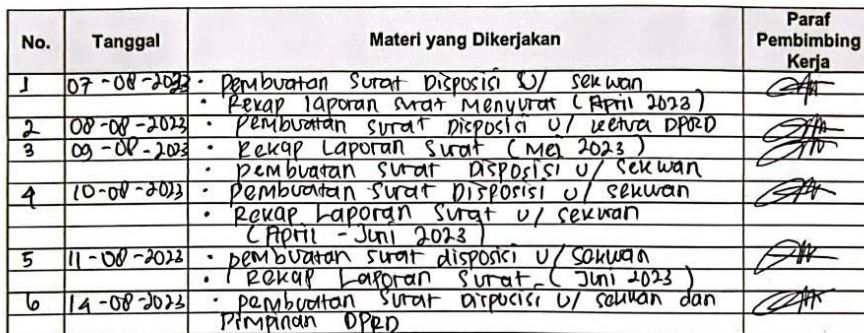 No. Tanggal Materi yang Dikerjakan Paraf Pembimbing Kerja
1 07-08-2023 • Pembuatan Surat Disposisi U/ sekwan
• Rekap laporan surat Menyurat (April 2023)
2 08-08-2023 • Pembuatan surat Disposisi U/ Ketua DPRD
3 09-08-2023 • Rekap Laporan Surat (Mei 2023)
• pembuatan surat Disposisi U/ Sekwan
4 10-08-2023 • Pembuatan Surat Disposisi U/ Sekwan
• Rekap Laporan Surat U/ sekwan
(April - Juni 2023)
5 11-08-2023 • pembuatan surat disposisi U/ Sekwan
• Rekap Laporan Surat (Juni 2023)
6 14-08-2023 • pembuatan Surat Disposisi U/ sekwan dan
Pimpinan DPRD